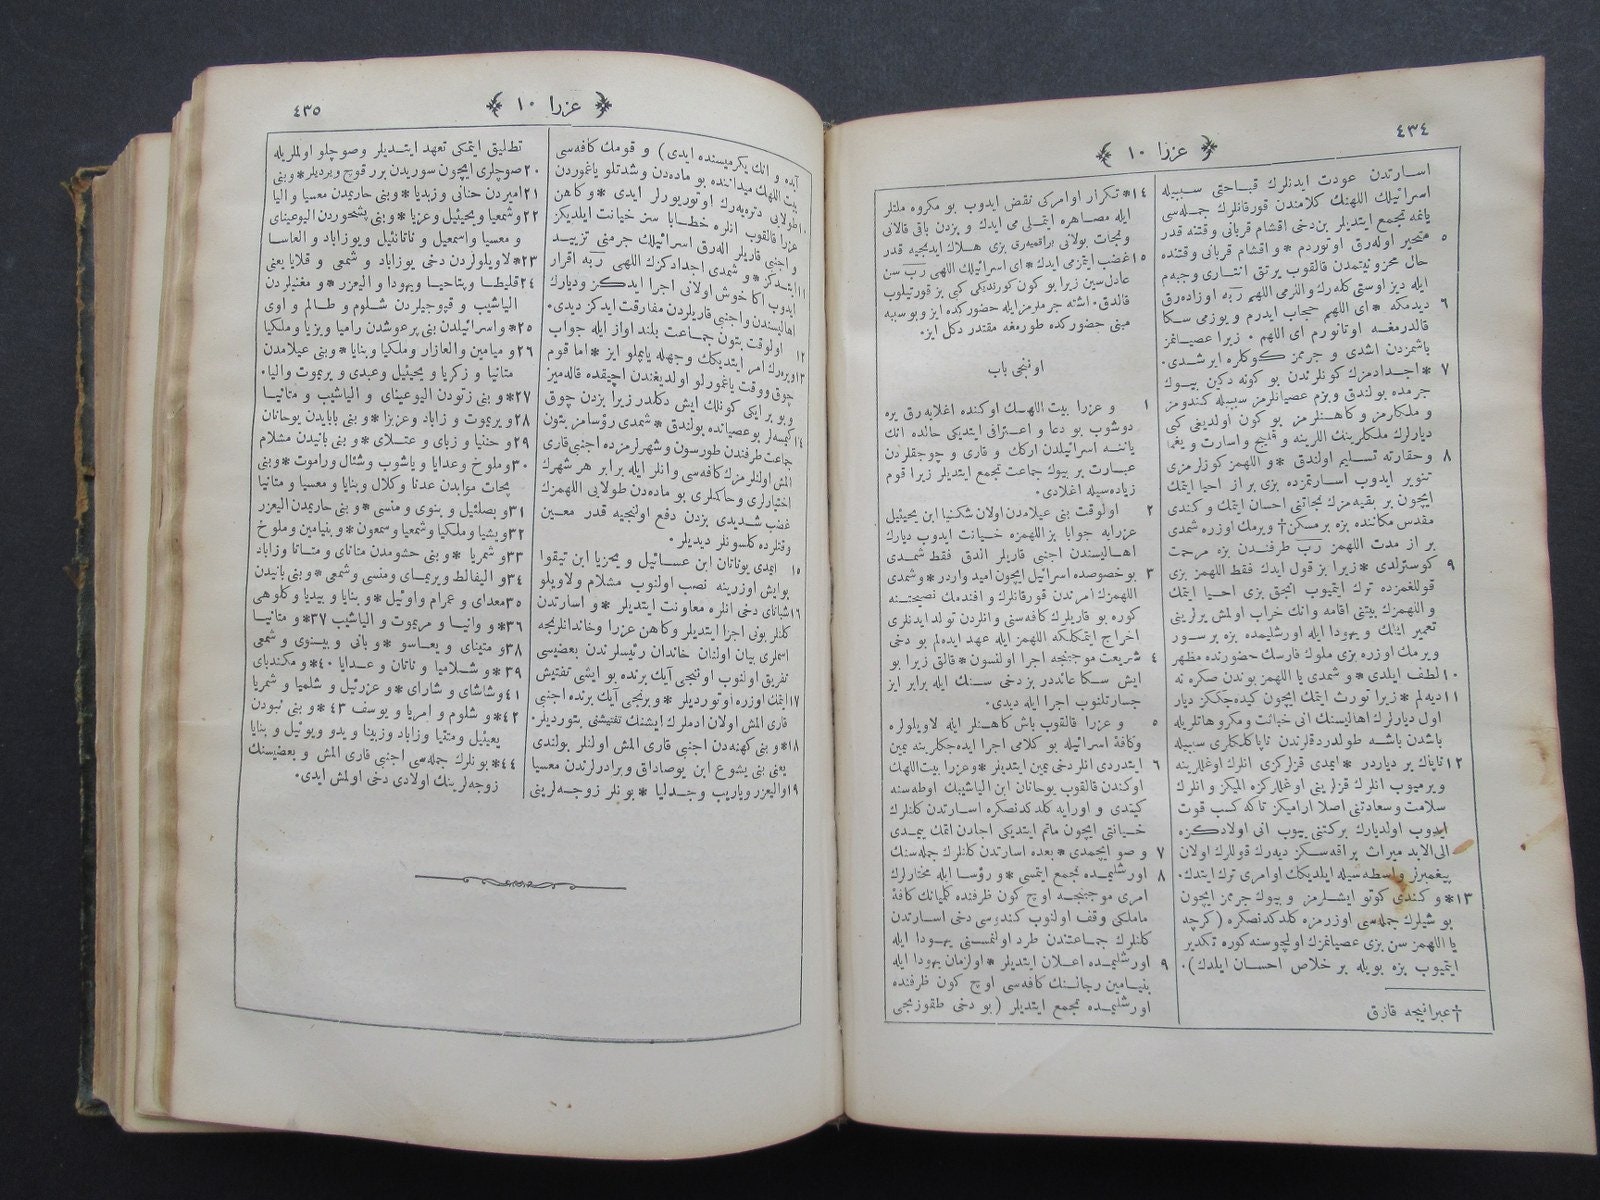 ٤٣٤
عزرا ١٠
اسارتدن عودت ایدنلرك قباحتی سببیله
اسرائیلك اللهنك كلامندن قورقانلرك جمله‌سی
یانمه تجمع ایتدیلر بن‌دخی اقشام قربانی وقتنه قدر
٥ متحیر اوله‌رق اوتوردم * و اقشام قربانی وقتنده
حال محزونیتمدن قالقوب یرتق انتاری وجبه‌م
ایله دیز اوستی كله‌رك واللرمی اللهم ربّه اوزاده‌رق
٦ دیدمكه * ای اللهم حجاب ایدرم و یوزمی سكا
قالدرمغه اوتانورم ای اللهم . زیرا عصیانمز
باشمزدن اشدی و جرممز كوكلره ایرشدی.
٧ * اجدادمزك كونلرندن بو كونه دكین بیوك
جرمده بولندق و بزم عصیانلرمز سببیله كندومز
و ملكلرمز و كاهنلرمز بو كون اولدیغی كبی
دیارلرك ملكلرینك اللرینه و قلیج و اسارت و یغما
٨ و حقارته تسلیم اولندق * و اللهمز كوزلرمزی
تنویر ایدوب اسارتمزده بزی بر از احیا ایتمك
ایچون بر بقیه‌مزك نجاتنی احسان ایتمك و كندی
مقدس مكاننده بزه بر مسكن† ویرمك اوزره شمدی
بر از مدت اللهمز ربّ طرفندن بزه مرحمت
٩ كوسترلدی * زیرا بز قول ایدك فقط اللهمز بزی
قوللغمزده ترك ایتمیوب انجق بزی احیا ایتمك
و اللهمزك بیتنی اقامه وانك خراب اولمش یرلرینی
تعمیر ایتمك و یهودا ایله اورشلیمده بزه بر سور
ویرمك اوزره بزی ملوك فارسك حضورنده مظهر
١٠ لطف ایلدی * و شمدی یا اللهمز بوندن صكره نه
١١ دیه‌لم * زیرا تورث ایتمك ایچون كیده‌جككز دیار
اول دیارلرك اهالیسنك انی خیانت ومكروهاتلریله
باشدن باشه طولدردقلرندن ناپاكلكلری سببیله
١٢ ناپاك بر دیاردر * ایمدی قزلركزی انلرك اوغللرینه
ویرمیوب انلرك قزلرینی اوغللركزه المیكز و انلرك
سلامت و سعادتنی اصلا ارامیكز تاكه كسب قوت
ایدوب اولدیارك بركتنی ییوب انی اولادكزه
الی‌الابد میراث براقه‌سكز دیه‌رك قوللرك اولان
پیغمبرلر واسطه‌سیله ایلدیكك اوامری ترك ایتدك.
١٣ * و كندی كوتو ایشلرمز و بیوك جرممز ایچون
بو شیلرك جمله‌سی اوزرمزه كلدكدنصكره (كرچه
یا اللهمز سن بزی عصیانمزك اولچوسنه كوره تكدیر
ایتمیوب بزه بویله بر خلاص احسان ایلدك).
† عبرانیجه قازق
١٤ * تكرار اوامركی نقض ایدوب بو مكروه ملتلر
ایله مصاهره ایتملی می ایدك و بزدن باقی قالانی
ونجات بولانی براقمیه‌رق بزی هلاك ایدنجیه قدر
١٥ غضب ایتمزمی ایدك * ای اسرائیلك اللهی ربّ سن
عادل‌سین زیرا بو كون كورندیكی كبی بز قورتیلوب
قالدق. اشته جرملرمز ایله حضوركده ایز وبوسببه
مبنی حضوركده طورمغه مقتدر دكل ایز.
اوننجی باب
١ و عزرا بیت اللهك اوكنده اغلایه‌رق یره
دوشوب بو دعا و اعترافی ایتدیكی حالده انك
یاننه اسرائیلدن اركك و قاری و چوجقلردن
عبارت بر بیوك جماعت تجمع ایتدیلر زیرا قوم
زیاده‌سیله اغلادی.
٢ اولوقت بنی عیلامدن اولان شكنیا ابن یحیئیل
عزرایه جوابا بز اللهمزه خیانت ایدوب دیارك
اهالیسندن اجنبی قاریلر الدق فقط شمدی
٣ بو خصوصده اسرائیل ایچون امید واردر * و شمدی
اللهمزك امرندن قورقانلرك و افندمك نصیحتنه
كوره بو قاریلرك كافه‌سنی وانلردن تولد ایدنلری
اخراج ایتمكلكه اللهمز ایله عهد ایده‌لم بو دخی
٤ شریعت موجبنجه اجرا اولنسون * قالق زیرا بو
ایش سكا عائددر بز دخی سنك ایله برابر ایز
جسارتلنوب اجرا ایله دیدی.
٥ و عزرا قالقوب باش كاهنلر ایله لاویلولره
وكافۀ اسرائیله بو كلامی اجرا ایده‌جكلرینه یمین
٦ ایتدردی انلر دخی یمین ایتدیلر * وعزرا بیت‌اللهك
اوكندن قالقوب یوحانان ابن الیاشیبك اوطه‌سنه
كیتدی و اورایه كلدكدنصكره اسارتدن كلانلرك
خیانتی ایچون ماتم ایتدیكی اجلدن اتمك ییمدی
٧ و صو ایچمدی * بعده اسارتدن كلانلرك جمله‌سنك
٨ اورشلیمده تجمع ایتمسی * و رؤسا ایله مختارلرك
امری موجبنجه اوچ كون ظرفنده كلمیانك كافۀ
ماملكی وقف اولنوب كندیسی دخی اسارتدن
كلانلرك جماعتندن طرد اولنمسنی یهودا ایله
٩ اورشلیمده اعلان ایتدیلر * اولزمان یهودا ایله
بنیامین رجالنك كافه‌سی اوچ كون ظرفنده
اورشلیمده تجمع ایتدیلر (بو دخی طقوزنجی
٤٣٥
عزرا ١٠
آیده و انك یكرمیسنده ایدی) و قومك كافه‌سی
بیت اللهك میداننده بو ماده‌دن و شدتلو یاغموردن
١٠ طولایی دتره‌یه‌رك اوتوریورلر ایدی * و كاهن
عزرا قالقوب انلره خطابا سز خیانت ایلدیكز
و اجنبی قاریلر اله‌رق اسرائیلك جرمنی تزیید
١١ ایتدكز * و شمدی اجدادكزك اللهی ربّه اقرار
ایدوب اكا خوش اولانی اجرا ایدكز و دیارك
اهالیسندن و اجنبی قاریلردن مفارقت ایدكز دیدی.
١٢ اولوقت بتون جماعت بلند اواز ایله جواب
١٣ ویره‌رك امر ایتدیكك وجهله یاپملو ایز * اما قوم
چوق ووقت یاغمورلو اولدیغندن اچیقده قاله‌میز
و بو بر ایكی كونلك ایش دكلدر زیرا بزدن چوق
١٤ كیمسه‌لر بو عصیانده بولندق * شمدی رؤسامز بتون
جماعت طرفندن طورسون و شهرلرمزده اجنبی قاری
المش اولنلرمزك كافه‌سی وانلر ایله برابر هر شهرك
اختیارلری و حاكملری بو ماده‌دن طولایی اللهمزك
غضب شدیدی بزدن دفع اولنجیه قدر معین
وقتلرده كلسونلر دیدیلر.
١٥ ایمدی یوناتان ابن عسائیل و یحزیا ابن تیقوا
بوایش اوزرینه نصب اولنوب مشلام ولاویلو
١٦ شبتای دخی انلره معاونت ایتدیلر * و اسارتدن
كلنلر بونی اجرا ایتدیلر وكاهن عزرا وخاندانلرنجه
اسملری بیان اولنان خاندان رئیسلرندن بعضیسی
تفریق اولنوب اوننجی آیك برنده بو ایشی تفتیش
١٧ ایتمك اوزره اوتوردیلر * و برنجی آیك برنده اجنبی
قاری المش اولان ادملرك ایشنك تفتیشنی بتوردیلر.
١٨ * و بنی كهنه‌دن اجنبی قاری المش اولنلر بولندی
یعنی بنی یشوع ابن یوصاداق وبرادرلرندن معسیا
١٩ والیعزر ویاریب وجدلیا * بونلر زوجه‌لرینی
تطلیق ایتمكی تعهد ایتدیلر وصوچلو اولملریله
٢٠ صوچلری ایچون سوریدن برر قوچ ویردیلر * و بنی
٢١ امیردن حنانی و زبدیا * و بنی حاریمدن معسیا و الیا
٢٢ و شمعیا و یحیئیل و عزیا * و بنی پشحوردن الیوعینای
و معسیا و اسمعیل و ناتانئیل و یوزاباد و العاسا
٢٣ * لاویلولردن دخی یوزاباد و شمعی و قلایا یعنی
٢٤ قلیطا و پتاحیا و یهودا و الیعزر * و مغنیلردن
الیاشیب و قپوجیلردن شلوم و طالم و اوی
٢٥ * و اسرائیلدن بنی پرعوشدن رامیا و یزیا و ملكیا
٢٦ و میامین و العازار و ملكیا و بنایا * و بنی عیلامدن
متانیا و زكریا و یحیئیل و عبدی و یریموت و الیا.
٢٧ * و بنی زتودن الیوعینای و الیاشیب و متانیا
٢٨ و یریموت و زاباد و عزیزا * و بنی بابایدن یوحانان
٢٩ و حننیا و زبای و عتلای * و بنی بانیدن مشلام
٣٠ و ملوخ و عدایا و یاشوب و شئال و راموت * و بنی
پحات موابدن عدنا و كلال و بنایا و معسیا و متانیا
٣١ و بصلئیل و بنوی و منسی * و بنی حاریمدن الیعزر
٣٢ و یشیا و ملكیا و شمعیا و سمعون * و بنیامین و ملوخ
٣٣ و شمریا * و بنی حشومدن متنای و متاتا و زاباد
٣٤ و الیفالط و یریمای و منسی و شمعی * و بنی بانیدن
٣٥ معدای و عمرام و اوئیل * و بنایا و بیدیا و كلوهی
٣٦ * و وانیا و مریموت و الیاشیب ٣٧ * و متانیا
٣٨ و متینای و یعاسو * و بانی و بینوی و شمعی
٣٩ * و شلامیا و ناتان و عدایا ٤٠ * و مكندبای
٤١ و شاشای و شارای * و عزرئیل و شلمیا و شمریا
٤٢ * و شلوم و امریا و یوسف ٤٣ * و بنی نبودن
یعیئیل و متتیا و زاباد و زبینا و یدو و یوئیل و بنایا
٤٤ * بونلرك جمله‌سی اجنبی قاری المش و بعضیسنك
زوجه‌لرینك اولادی دخی اولمش ایدی.